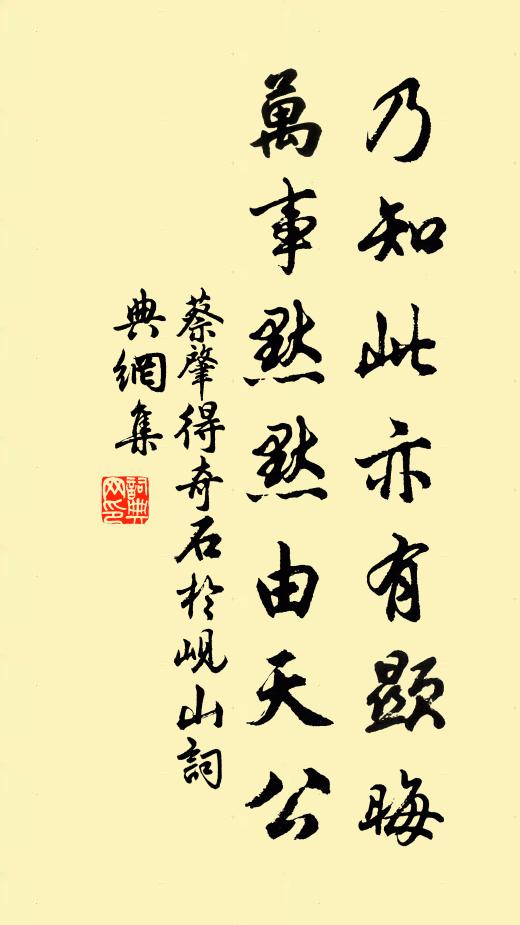 乃知此亦有顯晦
萬事默默由天公
蔡肇得奇石於峴山詞
典網集
詞典
网印